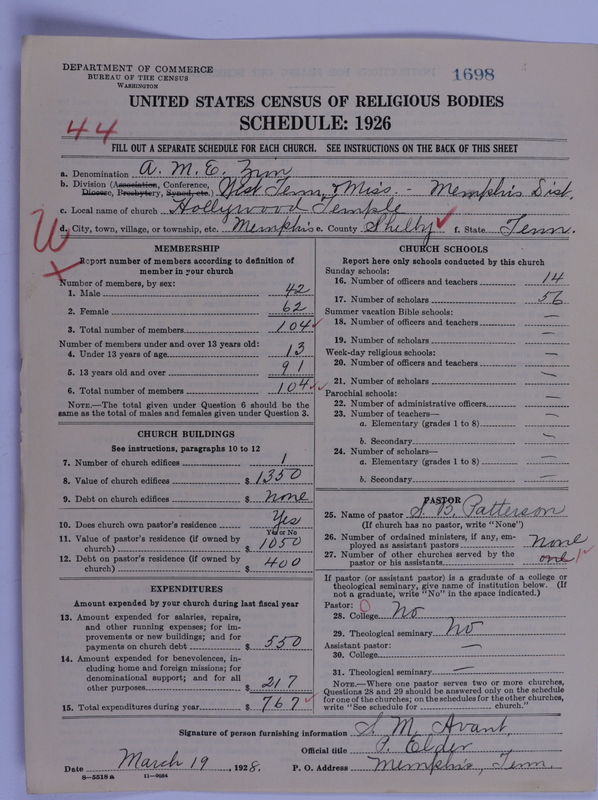 DEPARTMENT OF COMMERCE
BUREAU OF THE CENSUS
WASHINGTON
1698
UNITED STATES CENSUS OF RELIGIOUS BODIES
SCHEDULE: 1926
44
FILL OUT A SEPARATE SCHEDULE FOR EACH CHURCH. SEE INSTRUCTIONS ON THE BACK OF THIS SHEET
a. Denomination A. M. E. Zion
b. Division (Association, Conference, Diocese, Presbytery, Synod, etc.) West Tenn, & Miss. - Memphis Dist.
c. Local name of church Hollywood Temple
d. City, town, village, or township, etc. Memphis e. County Shelby f. State Tenn.
MEMBERSHIP
Report number of members according to definition of
member in your church
Number of members, by sex:
1. Male 42
2. Female 62
3. Total number of members 104
Number of members under and over 13 years old:
4. Under 13 years of age 13
5. 13 years old and over 91
6. Total number of members 104
NOTE.—The total given under Question 6 should be the
same as the total of males and females given under Question 3.
CHURCH BUILDINGS
See instructions, paragraphs 10 to 12
7. Number of church edifices 1
8. Value of church edifices $ 1350
9. Debt on church edifices $ none
10. Does church own pastor's residence Yes
Yes or No
11. Value of pastor's residence (if owned by
church) $ 1050
12. Debt on pastor's residence (if owned by
church) $ 400
EXPENDITURES
Amount expended by your church during last fiscal year
13. Amount expended for salaries, repairs,
and other running expenses; for im-
provements or new buildings; and for
payments on church debt $ 550
14. Amount expended for benevolences, in-
cluding home and foreign missions; for
denominational support; and for all
other purposes $ 217
15. Total expenditures during year $ 767
CHURCH SCHOOLS
Report here only schools conducted by this church
Sunday schools:
16. Number of officers and teachers 14
17. Number of scholars 56
Summer vacation Bible schools:
18. Number of officers and teachers —
19. Number of scholars —
Week-day religious schools:
20. Number of officers and teachers —
21. Number of scholars —
Parochial schools:
22. Number of administrative officers —
23. Number of teachers—
a. Elementary (grades 1 to 8) —
b. Secondary —
24. Number of scholars—
a. Elementary (grades 1 to 8) —
b. Secondary —
PASTOR
25. Name of pastor S. B. Patterson
(If church has no pastor, write "None")
26. Number of ordained ministers, if any, em-
ployed as assistant pastors none
27. Number of other churches served by the
pastor or his assistants one 1
If pastor (or assistant pastor) is a graduate of a college or
theological seminary, give name of institution below. (If
not a graduate, write "No" in the space indicated.)
Pastor: 0
28. College No
29. Theological seminary No
Assistant pastor:
30. College —
31. Theological seminary —
NOTE.—Where one pastor serves two or more churches,
Questions 28 and 29 should be answered only on the schedule
for one of the churches; on the schedules for the other churches,
write "See schedule for church."
Signature of person furnishing information S. M. Avant,
Official title P. Elder
Date March 19, 1928. P. O. Address Memphis, Tenn.
8—5518a 11—9034